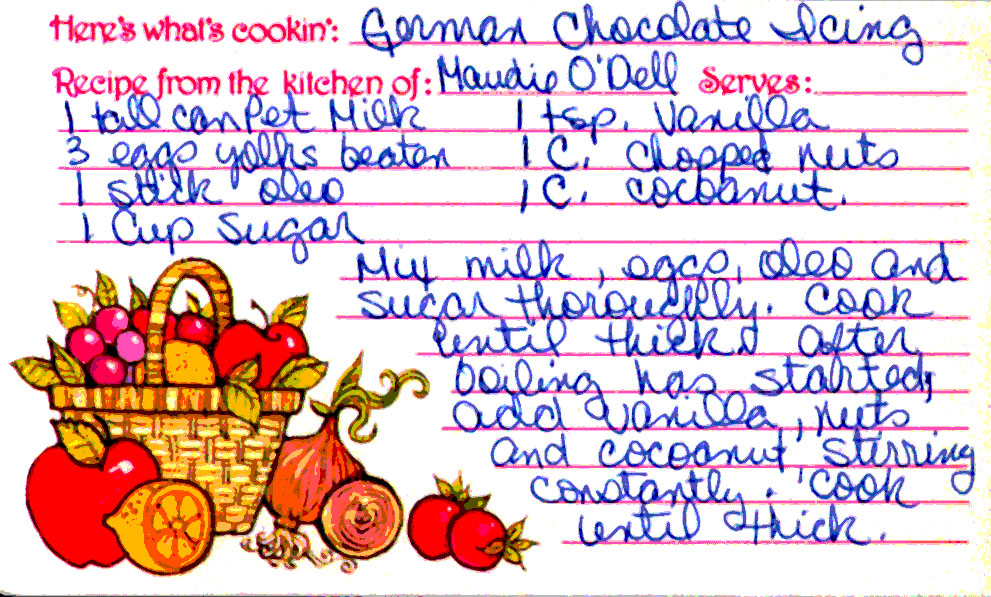 Here's what's cookin': German Chocolate Icing
Recipe from the kitchen of: Maudie O'Dell Serves:
1 tall can Pet Milk 1 tsp. Vanilla
3 eggs yolks beaten 1 C. chopped nuts
1 stick oleo 1 C. cocoanut.
1 Cup Sugar
Mix milk, eggs, oleo and
sugar thoroughly. Cook
until thick. After
boiling has started,
add vanilla, nuts
and cocoanut stirring
constantly. Cook
until thick.